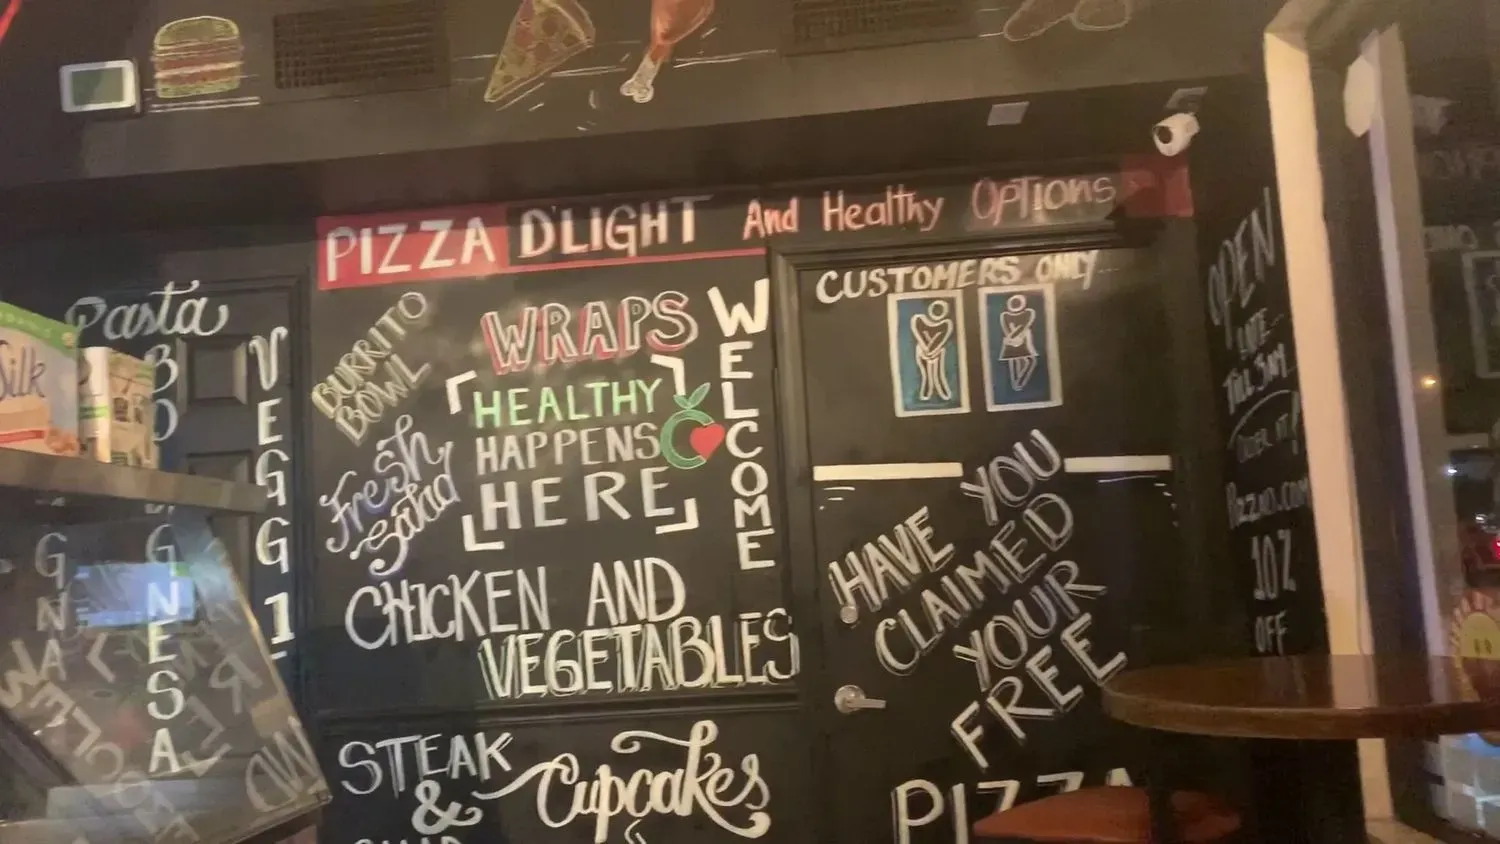 PIZZA D'LIGHT And Healthy Options
Pasta
VEGGI
Silk
BURRITO
BOWL
Fresh
Salad
WRAPS
HEALTHY
HAPPENS
HERE
WELCOME
CHICKEN AND
VEGETABLES
STEAK
&
Cupcakes
CUSTOMERS ONLY
HAVE YOU
CLAIMED
YOUR
FREE
PIZZA
OPEN
LATE...
TILL 5AM
ORDER AT!
10%
OFF